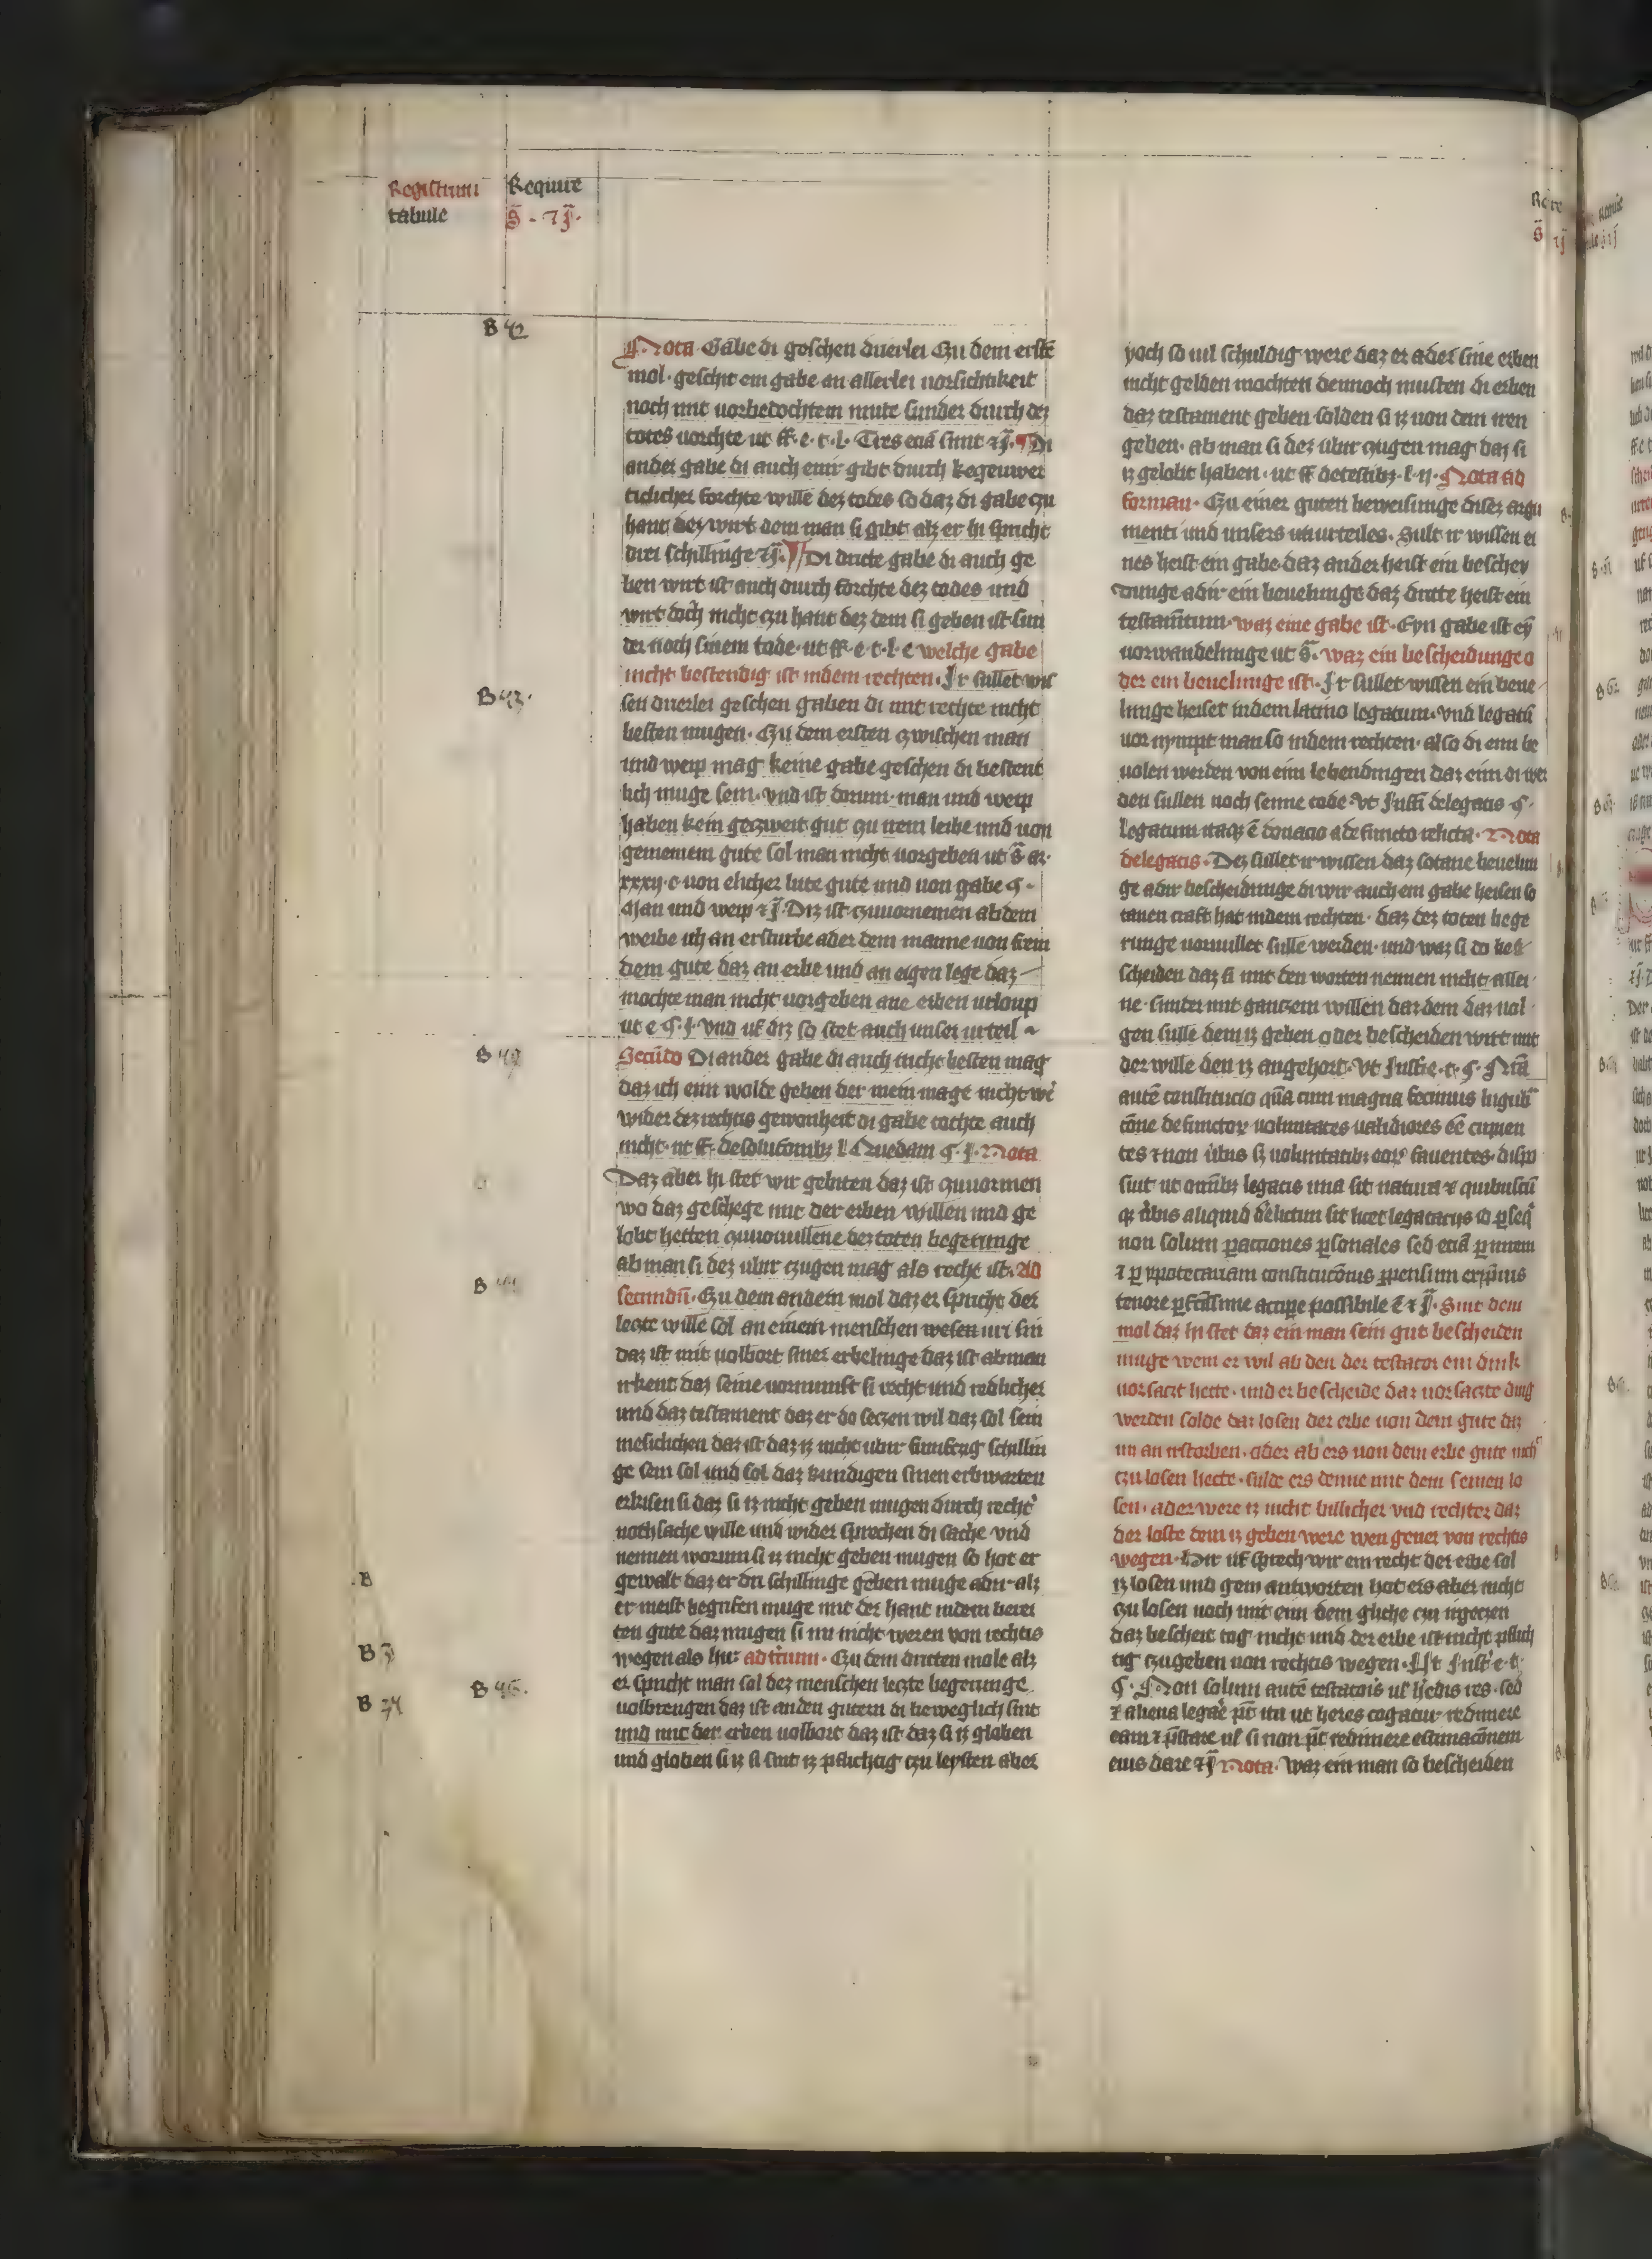 Registrum
tabule
Require
s̄ · ⁊ ꝭ·
B 42
Nota Gabe di geschen driuerlei Czu dem erstē
mol · geschit ein gabe an allerlei uorsichtikeit
noch mit uorbedochtem mute sunder durch dez
totes uorchte ut ff · e · t · l · Tres etiā sunt ⁊ ꝭ · ¶ Di
ander gabe di auch einr gibt durch kegenwer
tichlicher forchte wille dez todes so daz di gabe czu
hant dez wirt dem man si gibt alz er hi spricht
drei schillinge ⁊ ꝭ · ¶ Di dritte gabe di auch ge
ben wirt ist auch durch forchte dez todes und
wirt doch nicht czu hant dez dem si geben ist sun
der noch sinem tode · ut ff · e · t · l · e welche gabe
nicht bestendig ist indem rechten · Ir sullet wis
B 43 ·
sen driuerlei geschen gaben di mit rechte nicht
besten mugen · Czu dem ersten zwischen man
und weip mag keine gabe geschen di bestent
lich muge sein · vnd ist dorum · man und weip
haben kein geczweit gut czu irem leibe und uon
gemeinem gute sol man nicht uorgeben ut s̄ ar ·
xxxij · c · uon elicher lute gute und uon gabe ¶ ·
Man und weip ⁊ ꝭ · Diz ist czuuornemen ab dem
weibe ich an ersturbe ader dem manne uon frem
dem gute daz an erbe und an eigen lege daz
mochte man nicht uorgeben ane erben urloup
ut e ¶ · j · vnd uf diz so stet auch unser urteil
B 44
Secūdo Di ander gabe di auch nicht besten mag
daz ich einn wolde geben der mein mage nicht wē
wider dez rechtis gewonheit di gabe tochte auch
nicht · ut ff · de solucōnibz l Quedam ¶ · j · Nota
Daz aber hi stet wir gebiten daz ist czuuormen
wo daz geschege mit der erben willen und ge
lobt hetten czuuoruullene dez toten begerunge
ab man si dez ubir czugen mag als recht ist · Ad
B 45
secundū · Czu dem andern mol daz er spricht der
leczte wille sol an einem menschen wesen uri sin
daz ist mit uolbort siner erbelinge daz ist ab man
irkent daz seine uornumft si recht und redlicher
und daz testament daz er do seczen wil daz sol sein
mesichlichen daz ist daz iz nicht ubir fumfczig schillin
ge sein sol und sol daz kundigen sinen erbwarten
erkisen si daz si iz nicht geben mugen durch recht
noth sache wille und wider sprechen di sache vnd
nennen worum si iz nicht geben mugen so hot er
B
gewalt daz er dri schillinge geben muge adir alz
er meist begrifen muge mit der hant indem berei
ten gute daz mugen si im nicht weren von rechtis
B 3
wegen als hir · ad tcium · Czu dem dritten mole alz
B 46 ·
er spricht man sol dez menschen leczte begerunge
B 24
uolbrengen daz ist an den gutern di beweglich sint
und mit der erben uolbort daz ist daz si iz globen
und globen si iz si sint iz pflichtig czu leysten aber
yoch so uil schuldig were daz er ader sine erben
nicht gelden mochten dennoch musten di erben
daz testament geben solden si iz uon dem iren
geben · ab man si dez ubir czugen mag daz si
iz gelobt haben · ut ff de testibz · l · ij · Nota ad
formam · Czu einer guten beweisunge diser argu
menti und unsers uururteiles · Sult ir wissen ei
nes heist ein gabe daz ander heist ein beschei
dunge adir ein beuelunge daz dritte heist ein
testam̄tum · waz eine gabe ist · Eyn gabe ist eȳ
uorwandelunge ut s̄ · waz ein bescheidunge o
der ein beuelunge ist · Ir sullet wissen ein beue
lunge heiset indem latino legatum · vnd legatū
uor nympt man so indem rechten · also di einn be
uolen werden von einn lebendingen daz einn di wer
den sullen noch seime tode · Vt Insti delegatis ¶ ·
legatum itaqz ē donacio a defuncto relicta · Nota
delegatis · Dez sullet ir wissen daz sotane beuelun
ge adir bescheidunge di wir auch ein gabe heisen so
tanen craft hat indem rechten · daz dez toten bege
runge uoruullet sulle werden · und waz si do be
scheiden daz si mit den worten nennen nicht allei
ne · sunder mit ganczem willen daz dem daz uol
gen sulle dem iz geben oder bescheiden wirt mit
der wille den iz angehort · Vt Insti · e · t · ¶ · Nrā
autē constitucio quā cum magna fecimus lugub
cōne defunctoꝝ uoluntates ualidiores eē cupien
tes ⁊ non v̓bis sz uoluntatibz eoꝝ fauentes · dispo
suit ut omībz legatis una sit natura ⁊ quibuscū
qz v̓bis aliquid d̓elictum sit licet legatarijs id ꝑseq̄
non solum ꝑ acciones ꝑsonales sed eciā ꝑ in rem
⁊ ꝑ ypotecariam
tenore ꝑfctissime accipe possibile ē ⁊ ꝭ · Sint dem
mol daz hi stet daz ein man sein gut bescheiden
muge wem er wil ab den der testator ein dink
uorsaczt hette · und er bescheide daz uorsaczte ding
werden solde daz losen der erbe uon dem gute daz
im an irstorben · oder ab ers uon dem erbe gute nich
czu losen hette · sulde ers denne mit dem seinen lo
sen · ader were iz nicht billicher vnd rechter daz
der loste dem iz geben were wen gener von rechtis
wegen · Hir uf sprech wir ein recht der erbe sol
iz losen und gem antworten hot ers aber nicht
czu losen noch mit einn dem gliche czu irgeczen
daz bescheit tog nicht und der erbe ist nicht pflich
tig czugeben uon rechtis wegen · Vt Inst · e · t ·
¶ · Non solum autē testatoris ul̓ h̓edis res · sed
⁊ aliena legar̓ pt̄ ita ut heres cogatur redimere
eam ⁊ p̄stare ul̓ si non pt̄ redimere estimacōnem
eius dare ⁊ ꝭ Nota · Waz ein man so bescheiden